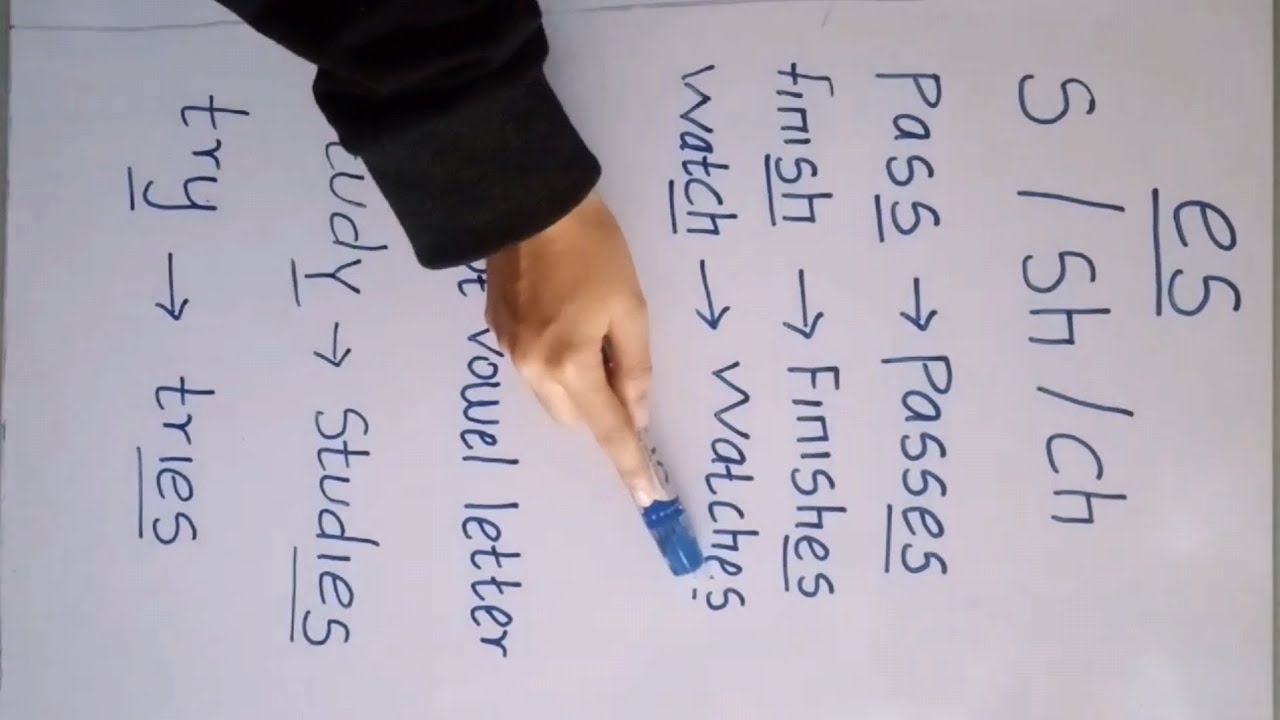 es
S / Sh / Ch
Pass → Passes
finish → Finishes
watch → watches
vowel letter
→ Studies
try → tries